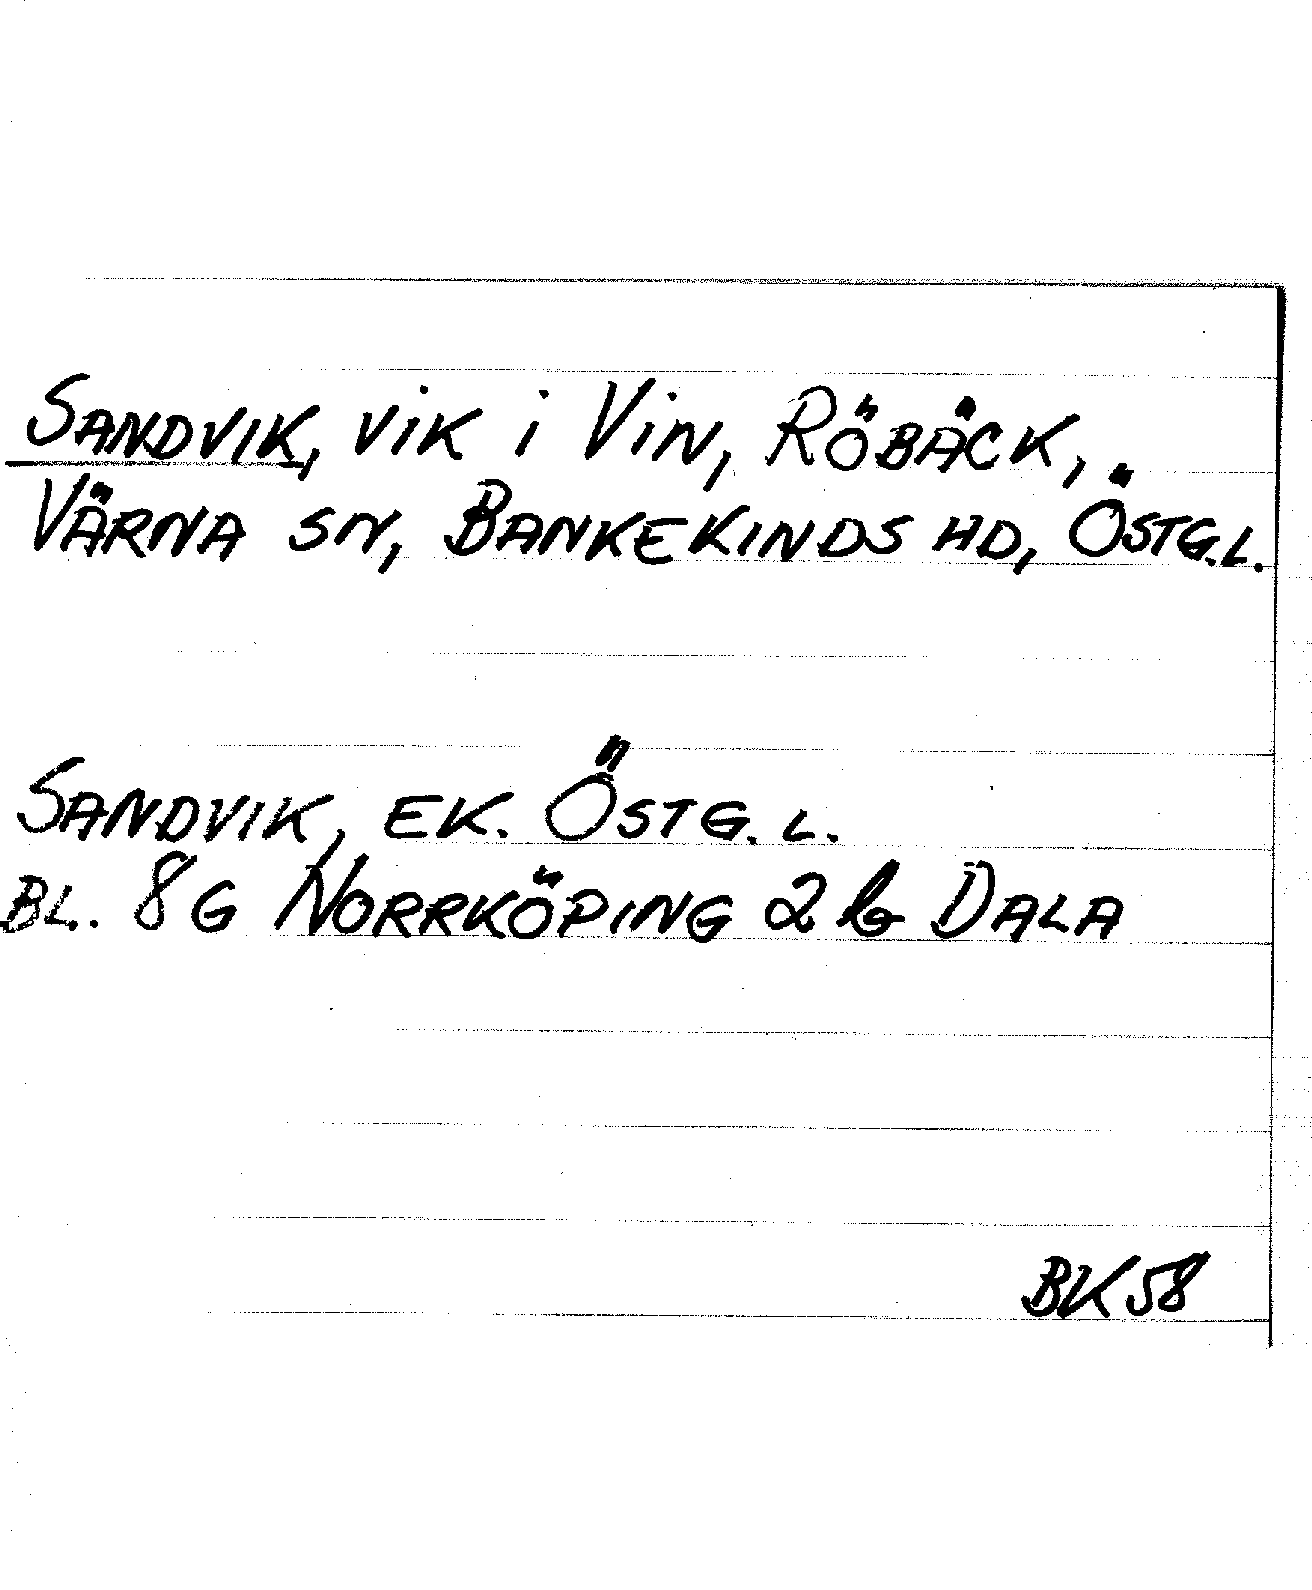 SANDVIK, VIK I VIN, RÖBÄCK,
VÄRNA SN, BANKEKINDS HD, ÖSTG.L.
SANDVIK, EK. ÖSTG. L.
BL. 8G NORRKÖPING 2 b DALA
BK 58